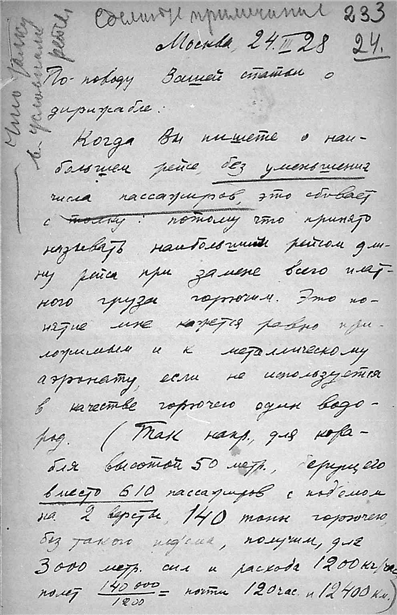 Сделать примечания 233
Москва, 24.III 28 24.
По поводу Вашей статьи о
дирижабле:
Когда Вы пишете о наи-
большем рейсе, без уменьшения
числа пассажиров, это сбивает
с толку: потому что принято
называть наибольшим рейсом дли-
ну рейса при замене всего плат-
ного груза горючим. Это по-
нятие мне кажется равно при-
ложимым и к металлическому
аэронату, если не используется
в качестве горючего один водо-
род. (Так напр., для кора-
бля высотой 50 метр., берущего
вместо 610 пассажиров с подъемом
на 2 версты, 140 тонн горючего
без такого подъема, получим, для
3000 метр. сил и расхода 1200 кг/час
полет 140 000 / 1200 = почти 120 час. и 12400 км.)